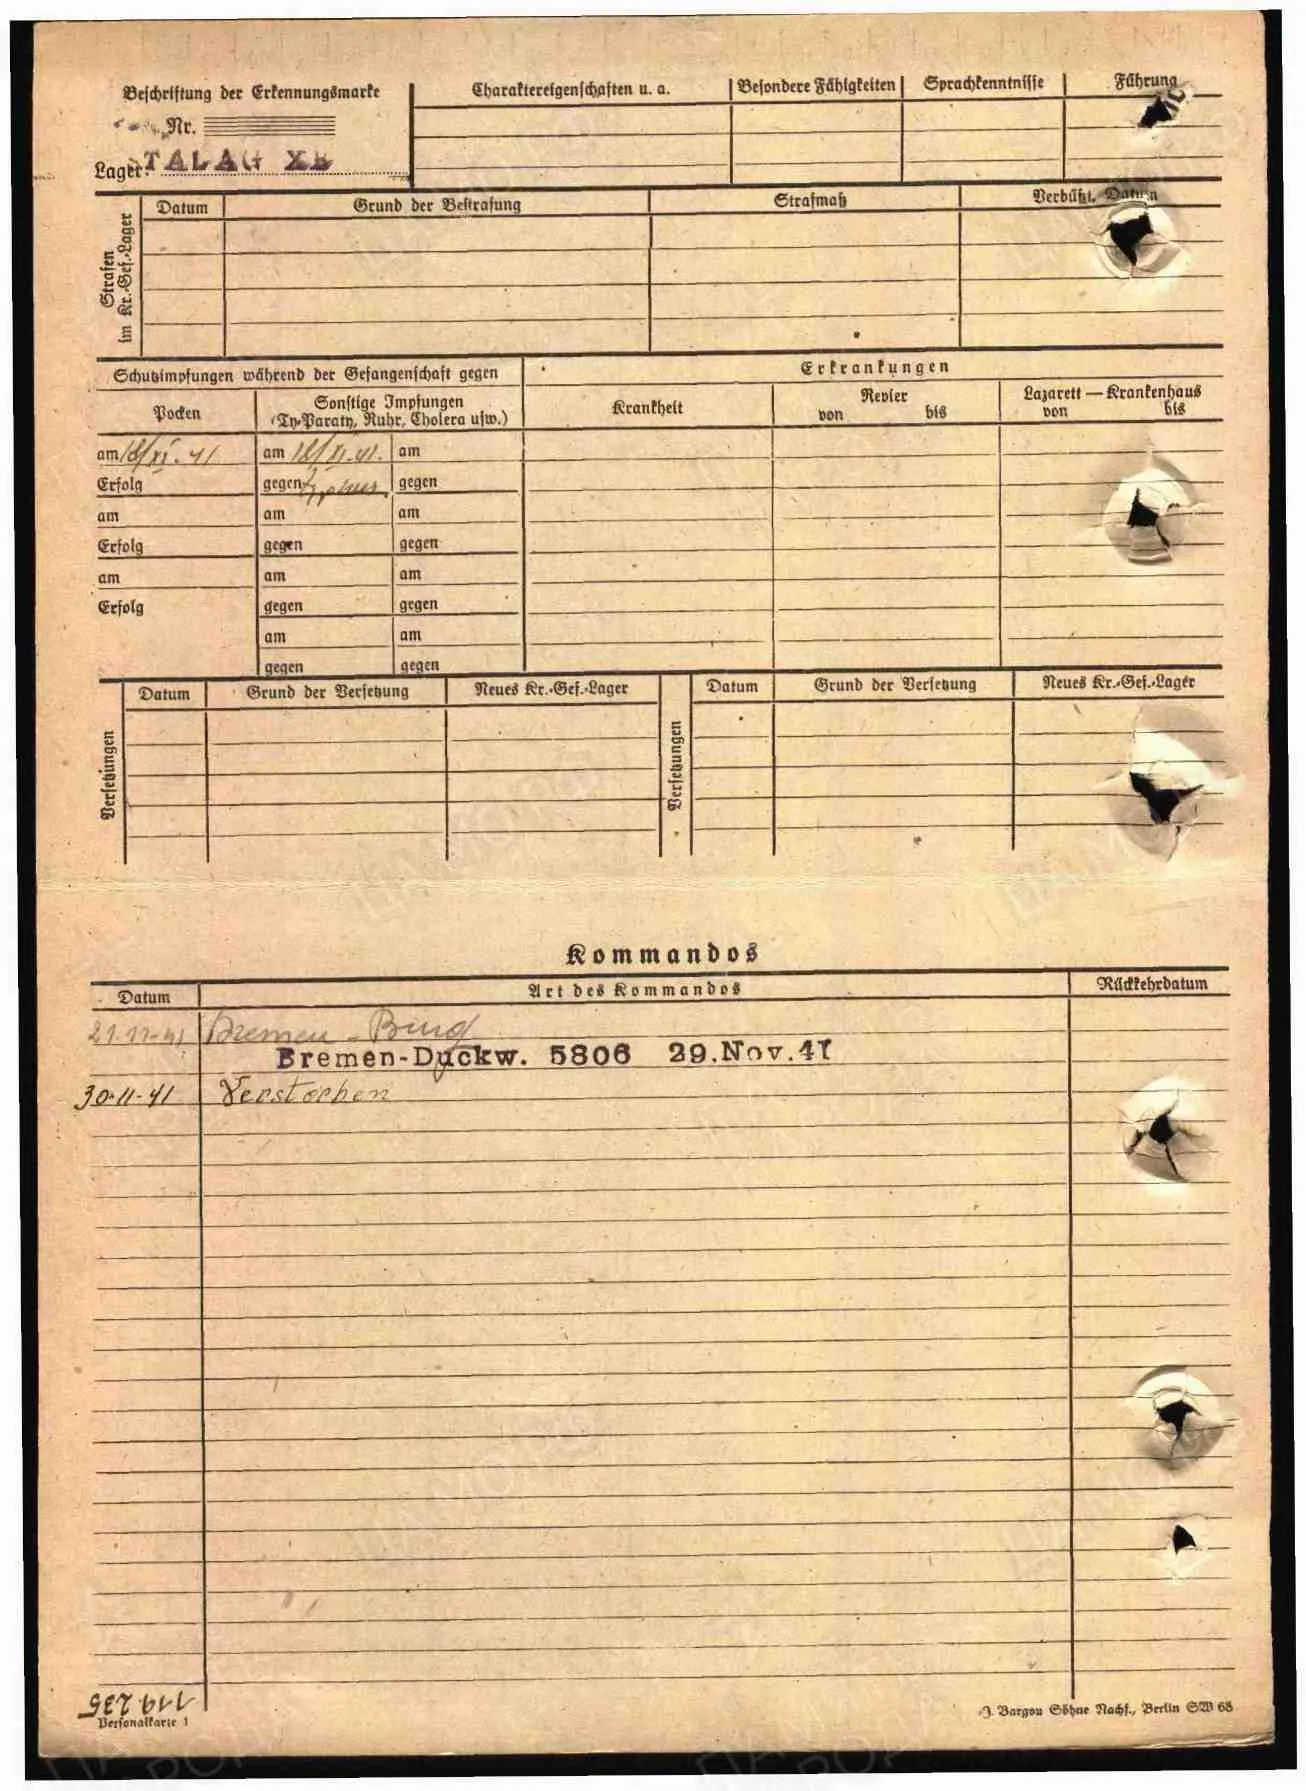 Beschriftung der Erkennungsmarke
Nr.
Lager: STALAG XB
Charaktereigenschaften u. a.
Besondere Fähigkeiten
Sprachkenntnisse
Führung
Strafen im Kr.-Gef.-Lager
Datum
Grund der Bestrafung
Strafmaß
Verbüßt, Datum
Schutzimpfungen während der Gefangenschaft gegen
Erkrankungen
Pocken
Sonstige Impfungen
(Ty-Paraty, Ruhr, Cholera usw.)
Krankheit
Revier
von bis
Lazarett — Krankenhaus
von bis
am 18/XI. 41 am 18/XI. 41. am
Erfolg gegen Typhus. gegen
am am am
Erfolg gegen gegen
am am am
Erfolg gegen gegen
am am
gegen gegen
Versetzungen
Datum Grund der Versetzung Neues Kr.-Gef.-Lager
Versetzungen
Datum Grund der Versetzung Neues Kr.-Gef.-Lager
Kommandos
Datum Art des Kommandos Rückkehrdatum
21.11-41 Bremen -
Bremen-Duckw. 5806 29.Nov.41
30-11-41 Verstorben
Personalkarte 1
J. Bargou Söhne Nachf., Berlin SW 68